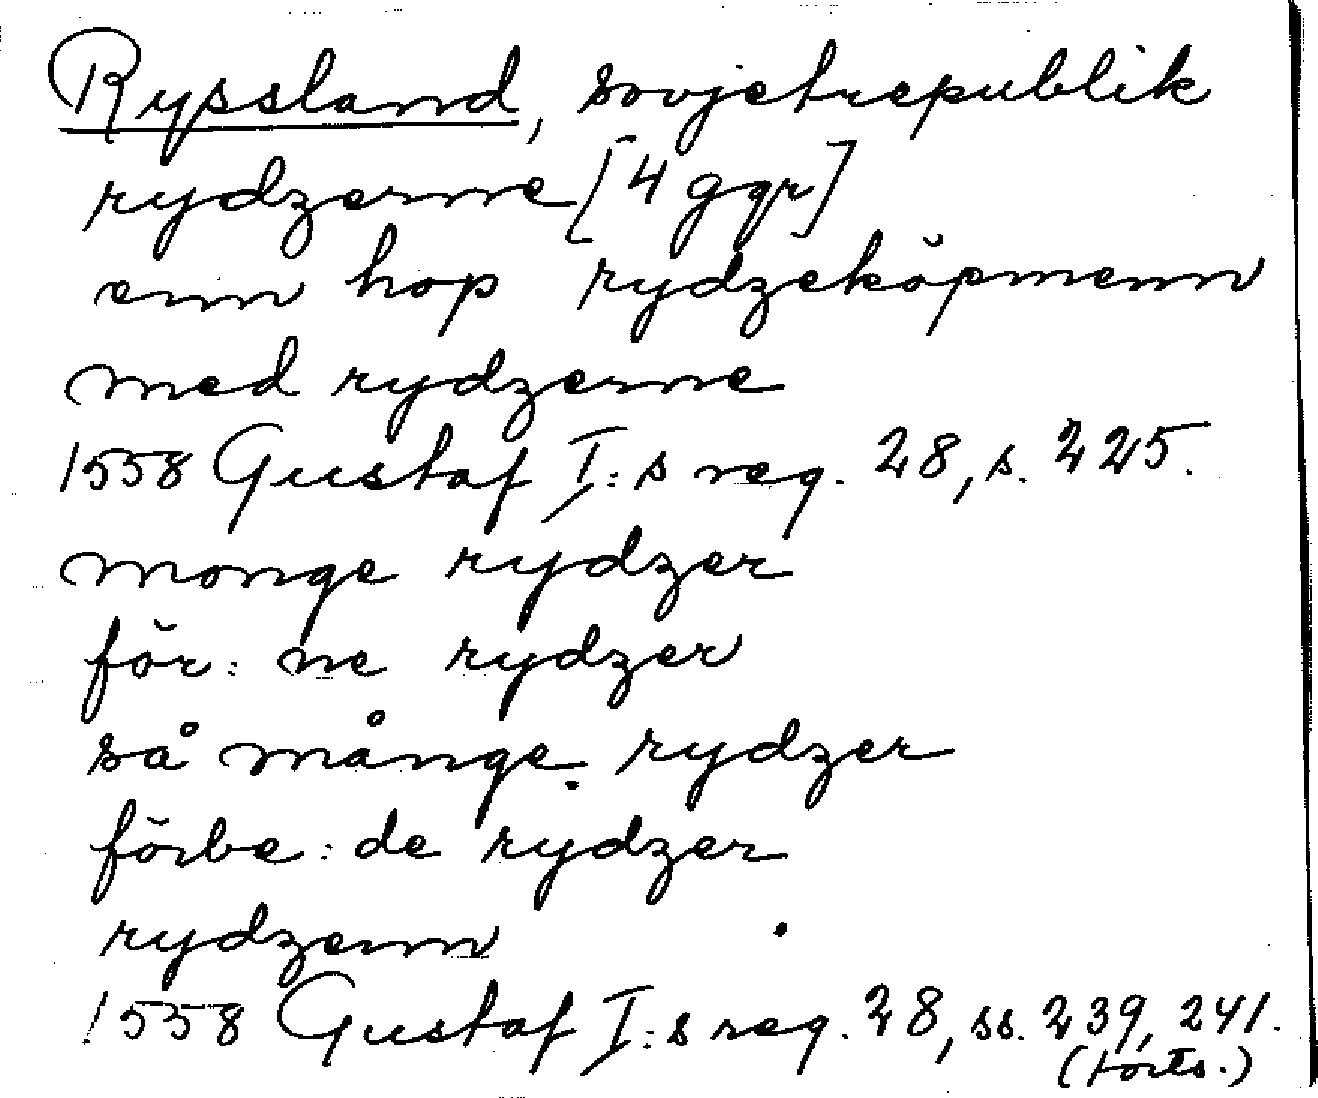 Ryssland, sovjetrepublik
rydzerne [4 ggr]
enn hop rydzeköpmenn
med rydzerne
1558 Gustaf I:s reg. 28, s. 225.
monge rydzer
för: ne rydzer
så månge rydzer
förbe: de rydzer
rydzenn
1558 Gustaf I:s reg. 28, ss. 239, 241.
(forts.)